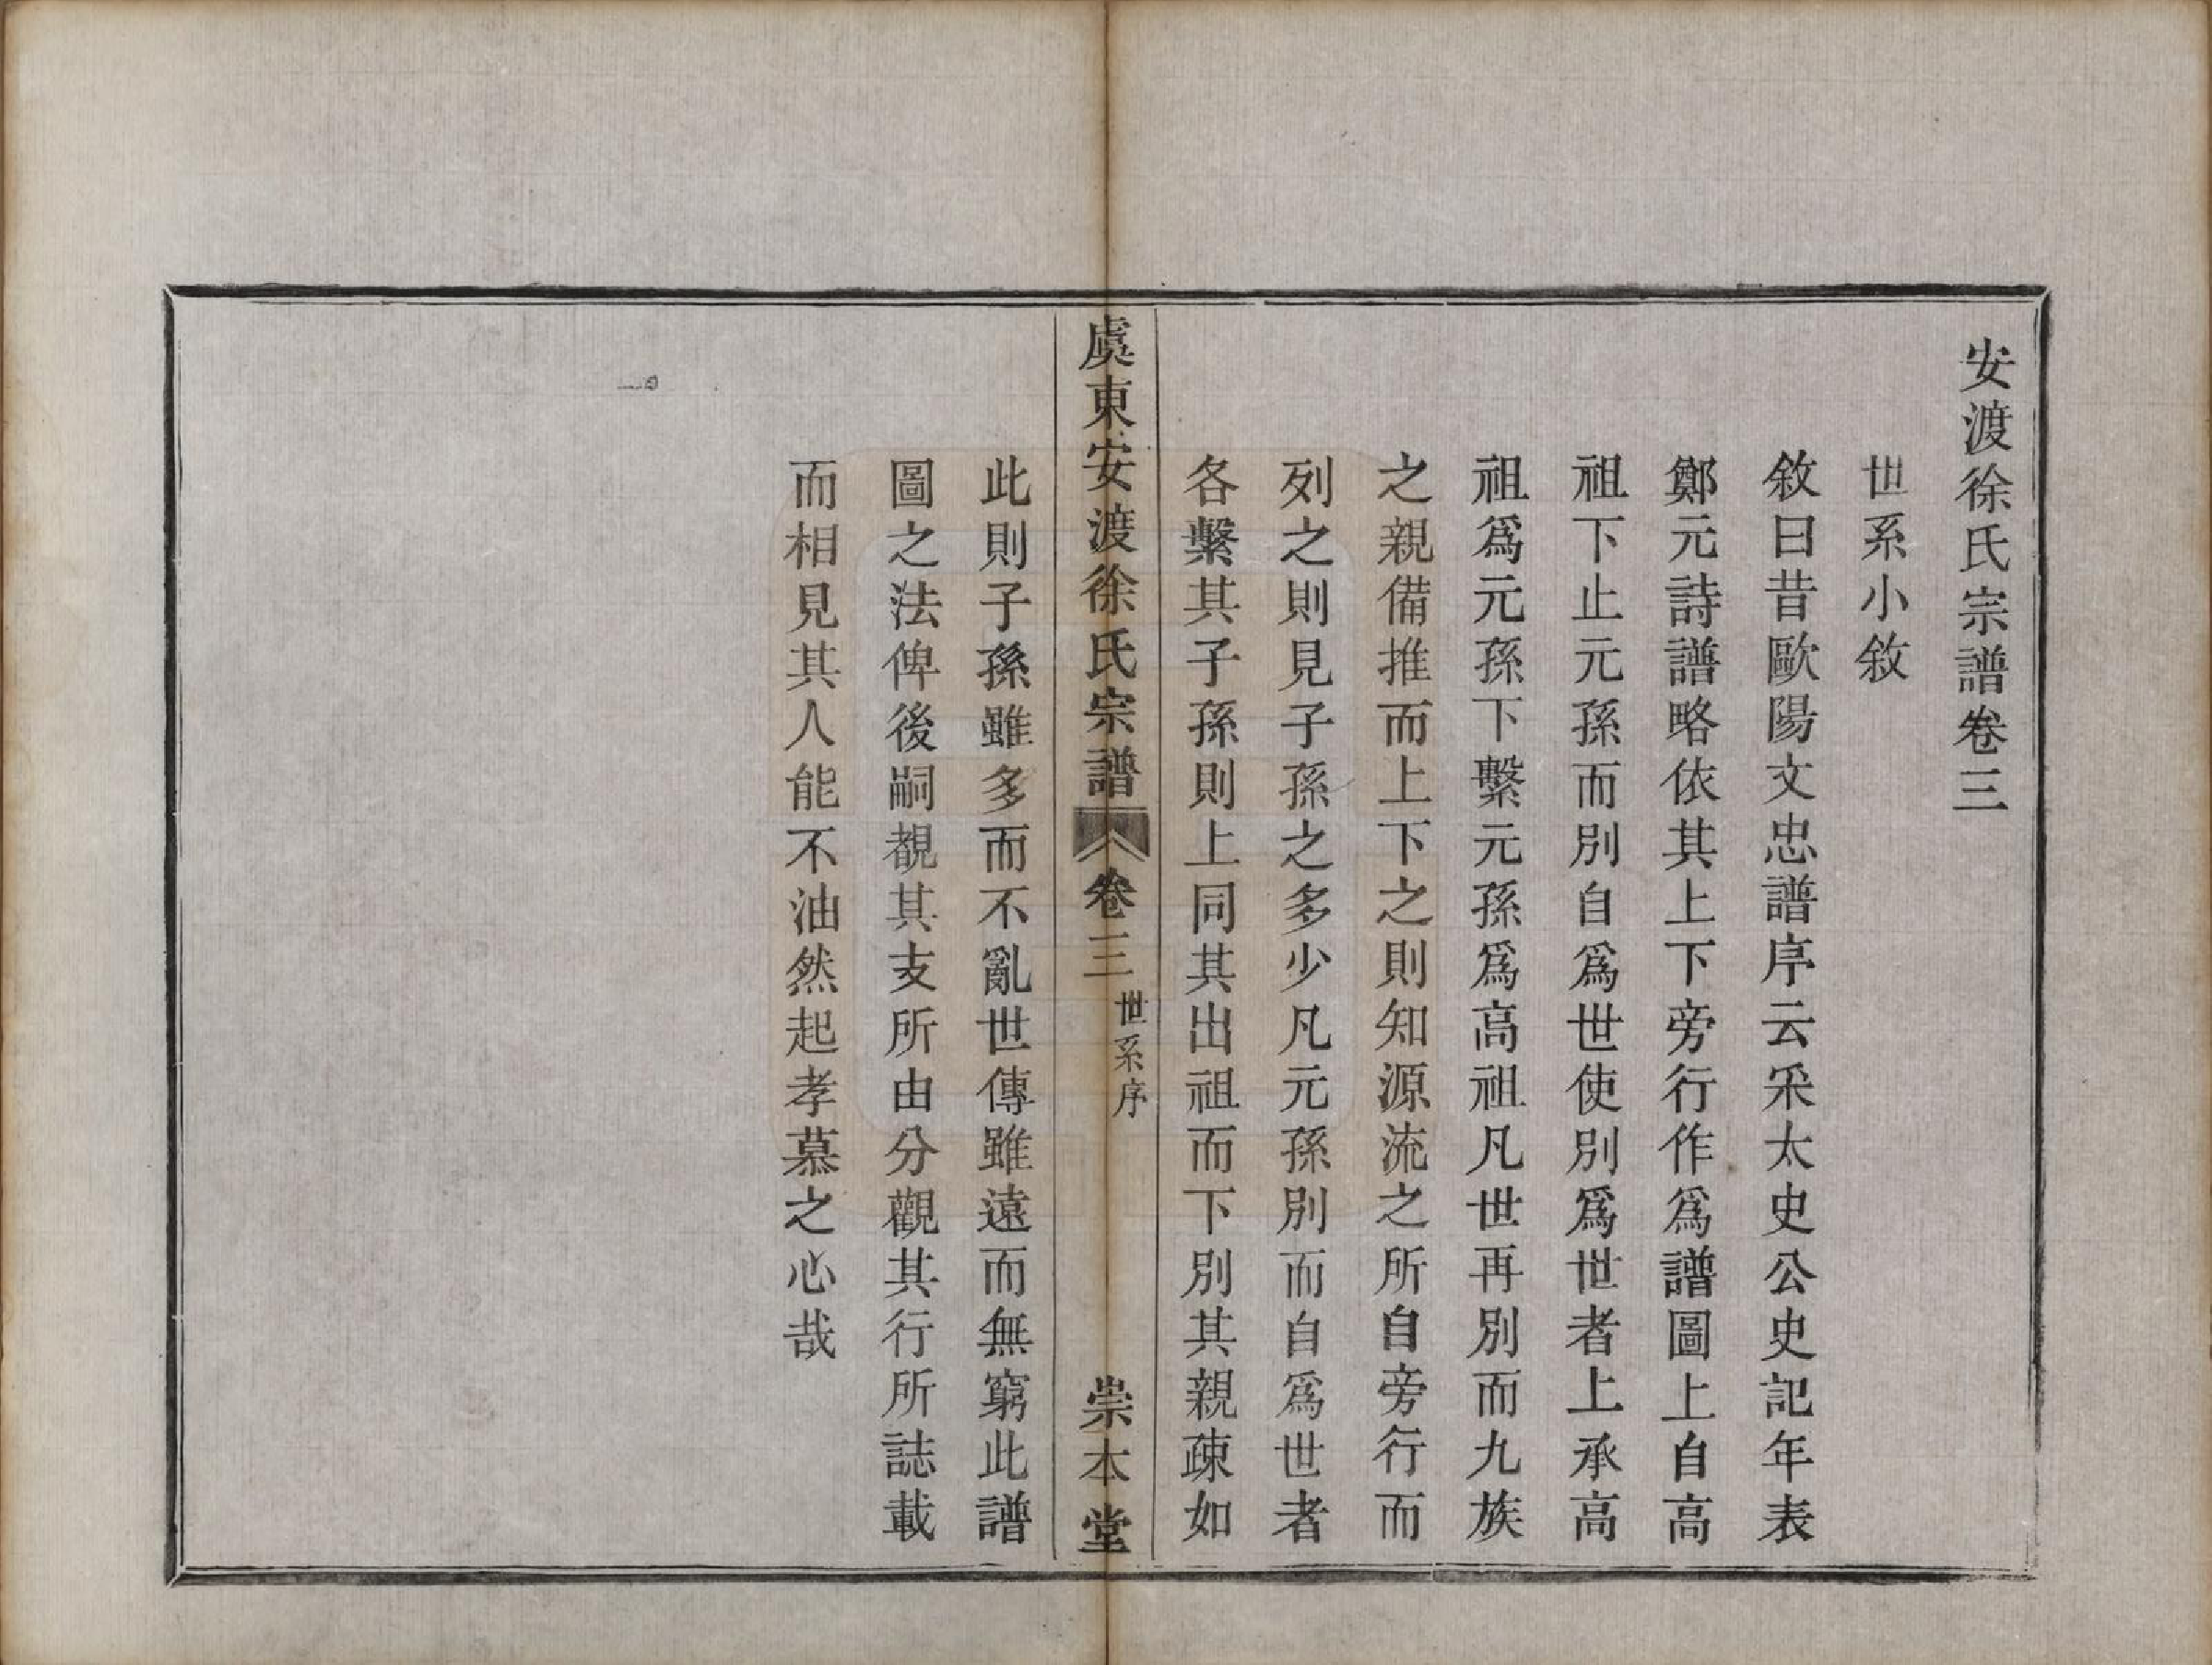 安渡徐氏宗譜卷三
世系小敘
敘曰昔歐陽文忠譜序云采太史公史記年表
鄭元詩譜略依其上下旁行作爲譜圖上自高
祖下止元孫而別自爲世使別爲世者上承高
祖爲元孫下繫元孫爲高祖凡世再別而九族
之親備推而上下之則知源流之所自旁行而
列之則見子孫之多少凡元孫別而自爲世者
各繫其子孫則上同其出祖而下別其親疎如
虞東安渡徐氏宗譜
卷三
世系序
崇本堂
此則子孫雖多而不亂世傳雖遠而無窮此譜
圖之法俾後嗣覩其支所由分觀其行所誌載
而相見其人能不油然起孝慕之心哉